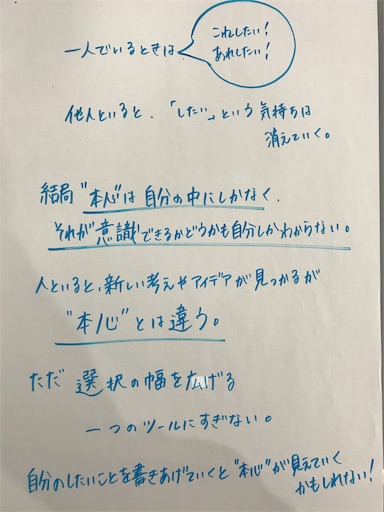 一人でいるときは
これしたい!
あれしたい!
他人といると、「したい」という気持ちは
消えていく。
結局"本心"は自分の中にしかなく、
それが意識できるかどうかも自分しかわからない。
人といると、新しい考えやアイデアが見つかるが
"本心"とは違う。
ただ 選択の幅を広げる
一つのツールにすぎない。
自分のしたいことを書きあげていくと"本心"が見えていく
かもしれない!